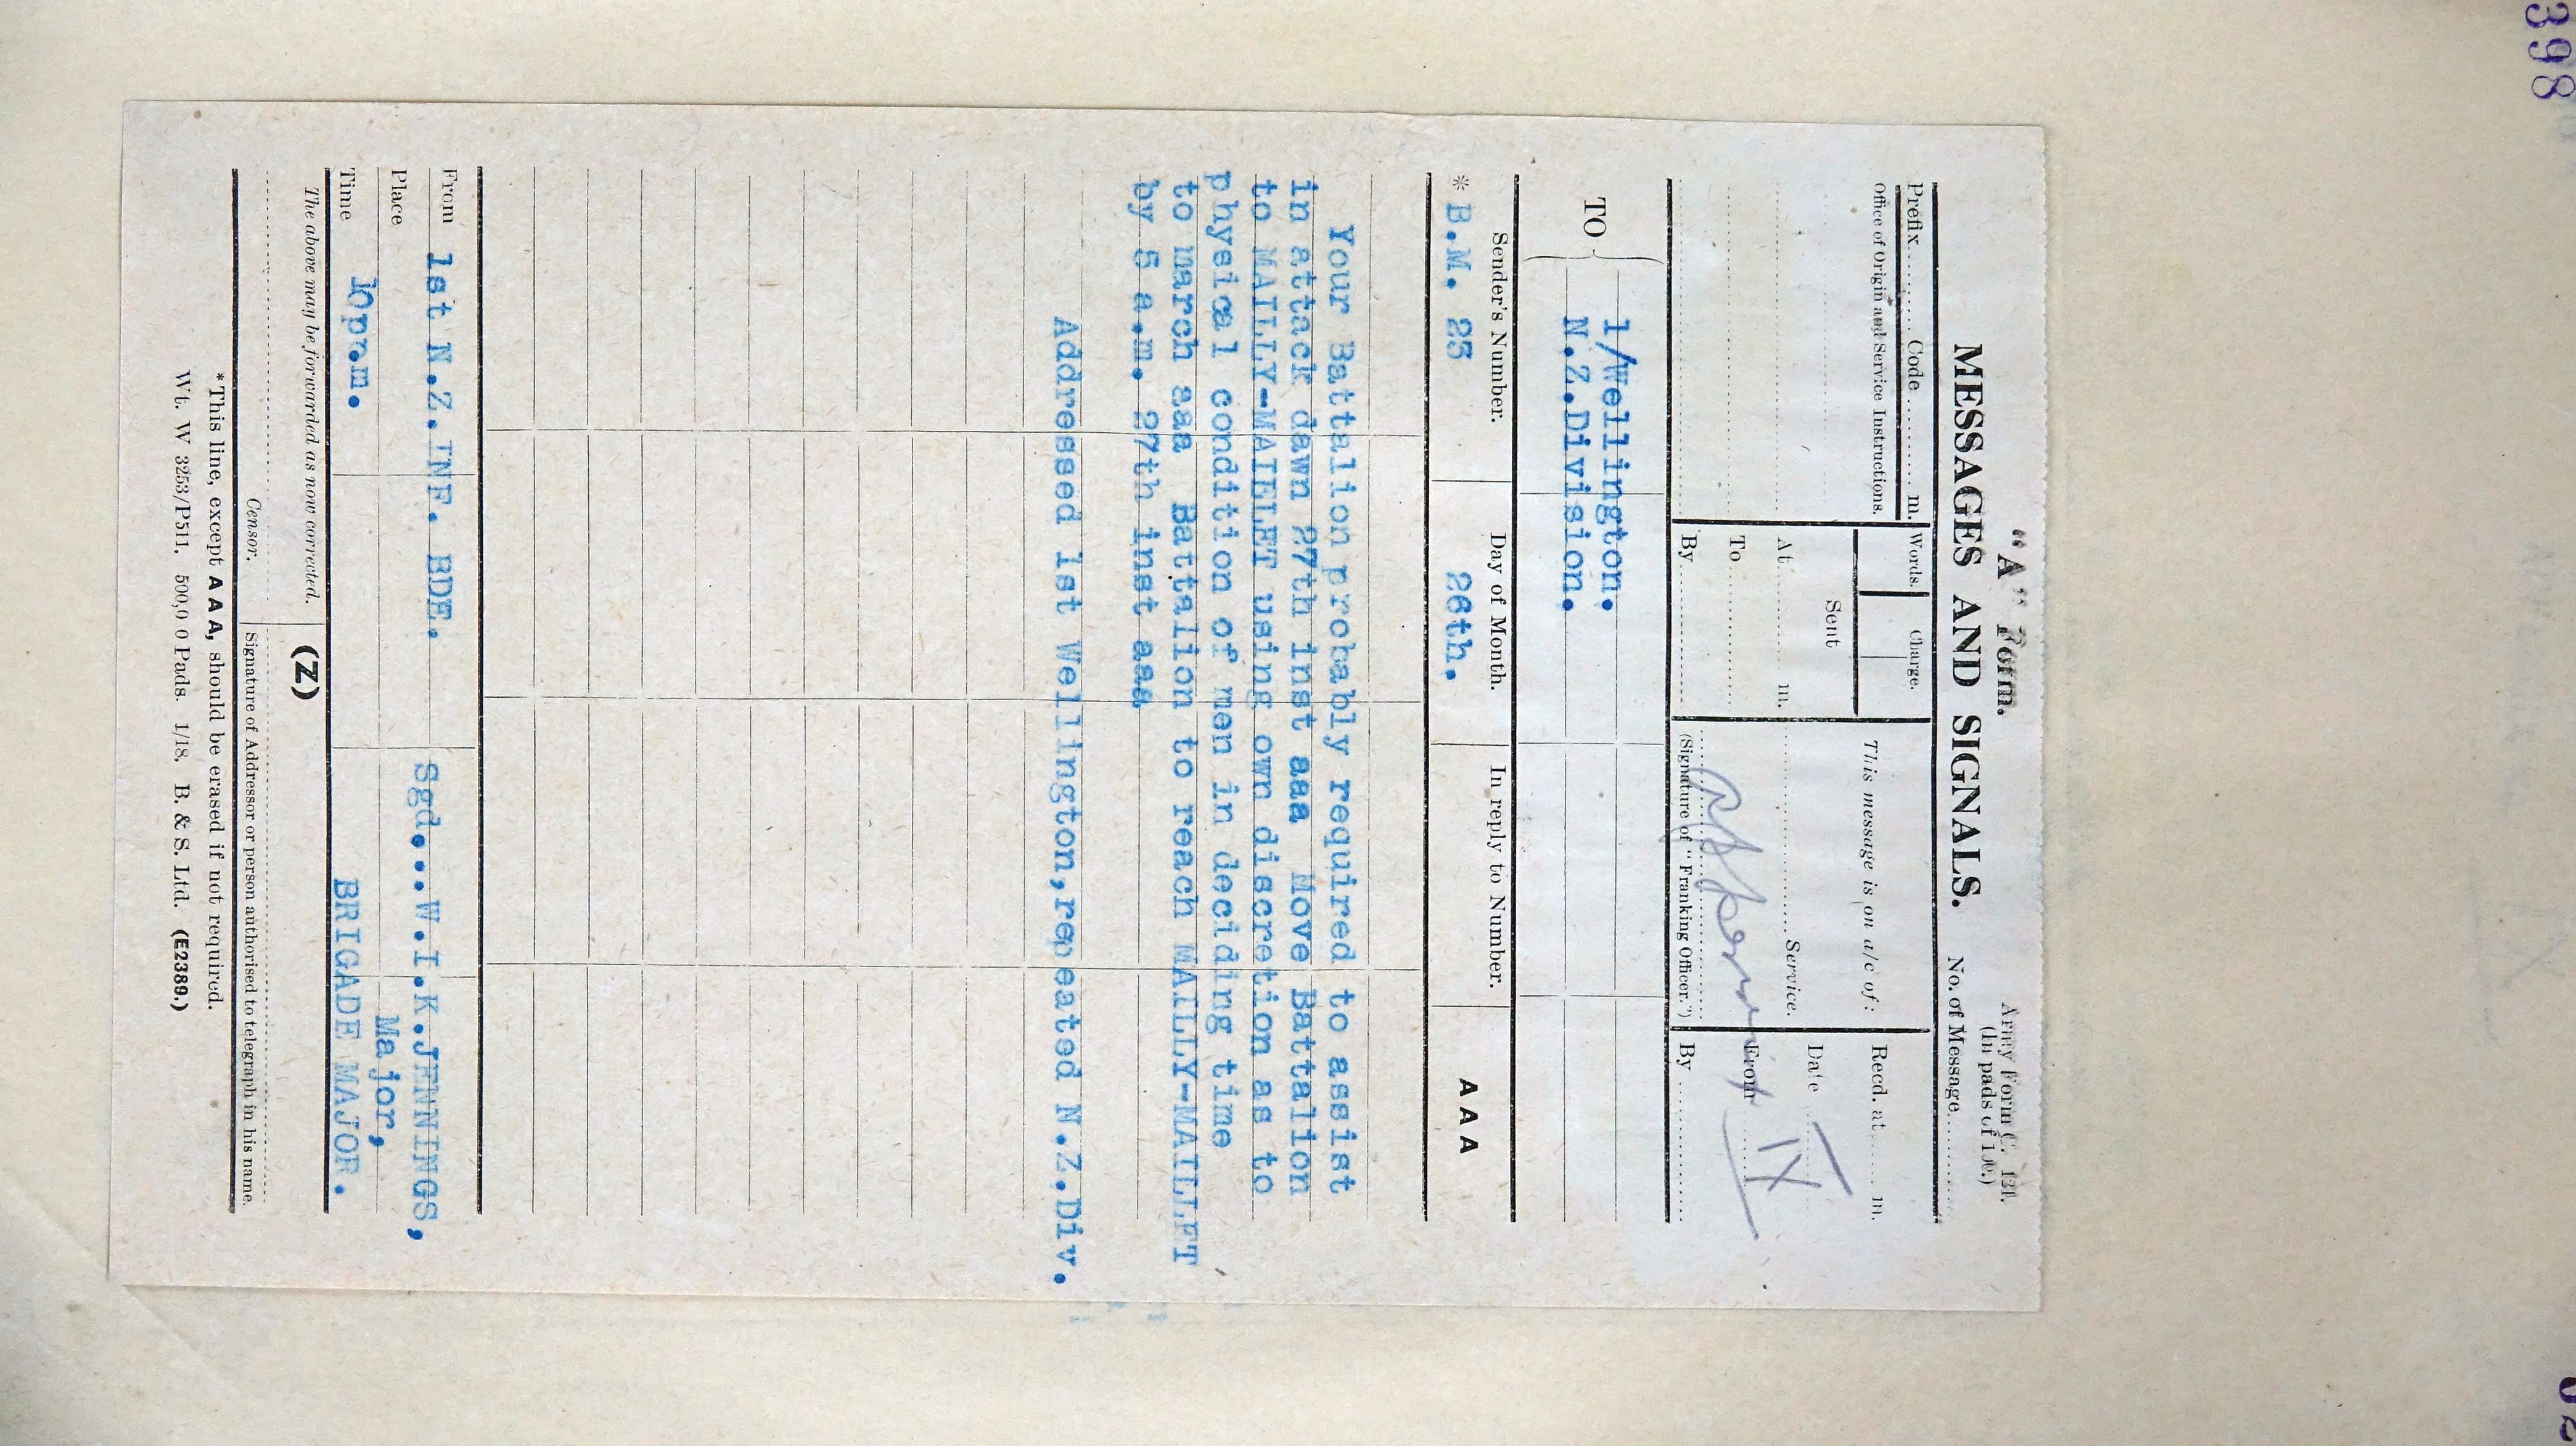 398
"A" Form.
Army Form C. 121.
(In pads of 100.)
MESSAGES AND SIGNALS.
No. of Message
Prefix Code m.
Words. Charge.
This message is on a/c of:
Recd. at m.
Office of Origin and Service Instructions.
Sent
Date
At m.
Service.
From
To
By
(Signature of "Franking Officer.")
By
IX
TO
1/Wellington.
N.Z.Division.
Sender's Number. Day of Month. In reply to Number.
* B.M. 25 26th. A A A
Your Battalion probably required to assist
in attack dawn 27th inst aaa Move Battalion
to MAILLY-MAIELET using own discretion as to
physical condition of men in deciding time
to march aaa Battalion to reach MAILLY-MAILLET
by 5 a.m. 27th inst aaa
Addressed 1st Wellington,repeated N.Z.Div.
From 1st N.Z.INF. BDE.
Sgd...W.I.K.JENNINGS,
Place
Major,
Time 10p.m.
BRIGADE MAJOR.
The above may be forwarded as now corrected. (Z)
Censor. Signature of Addressor or person authorised to telegraph in his name.
*This line, except A A A, should be erased if not required.
Wt. W 3253/P511. 500,0 0 Pads. 1/18. B. & S. Ltd. (E2389.)